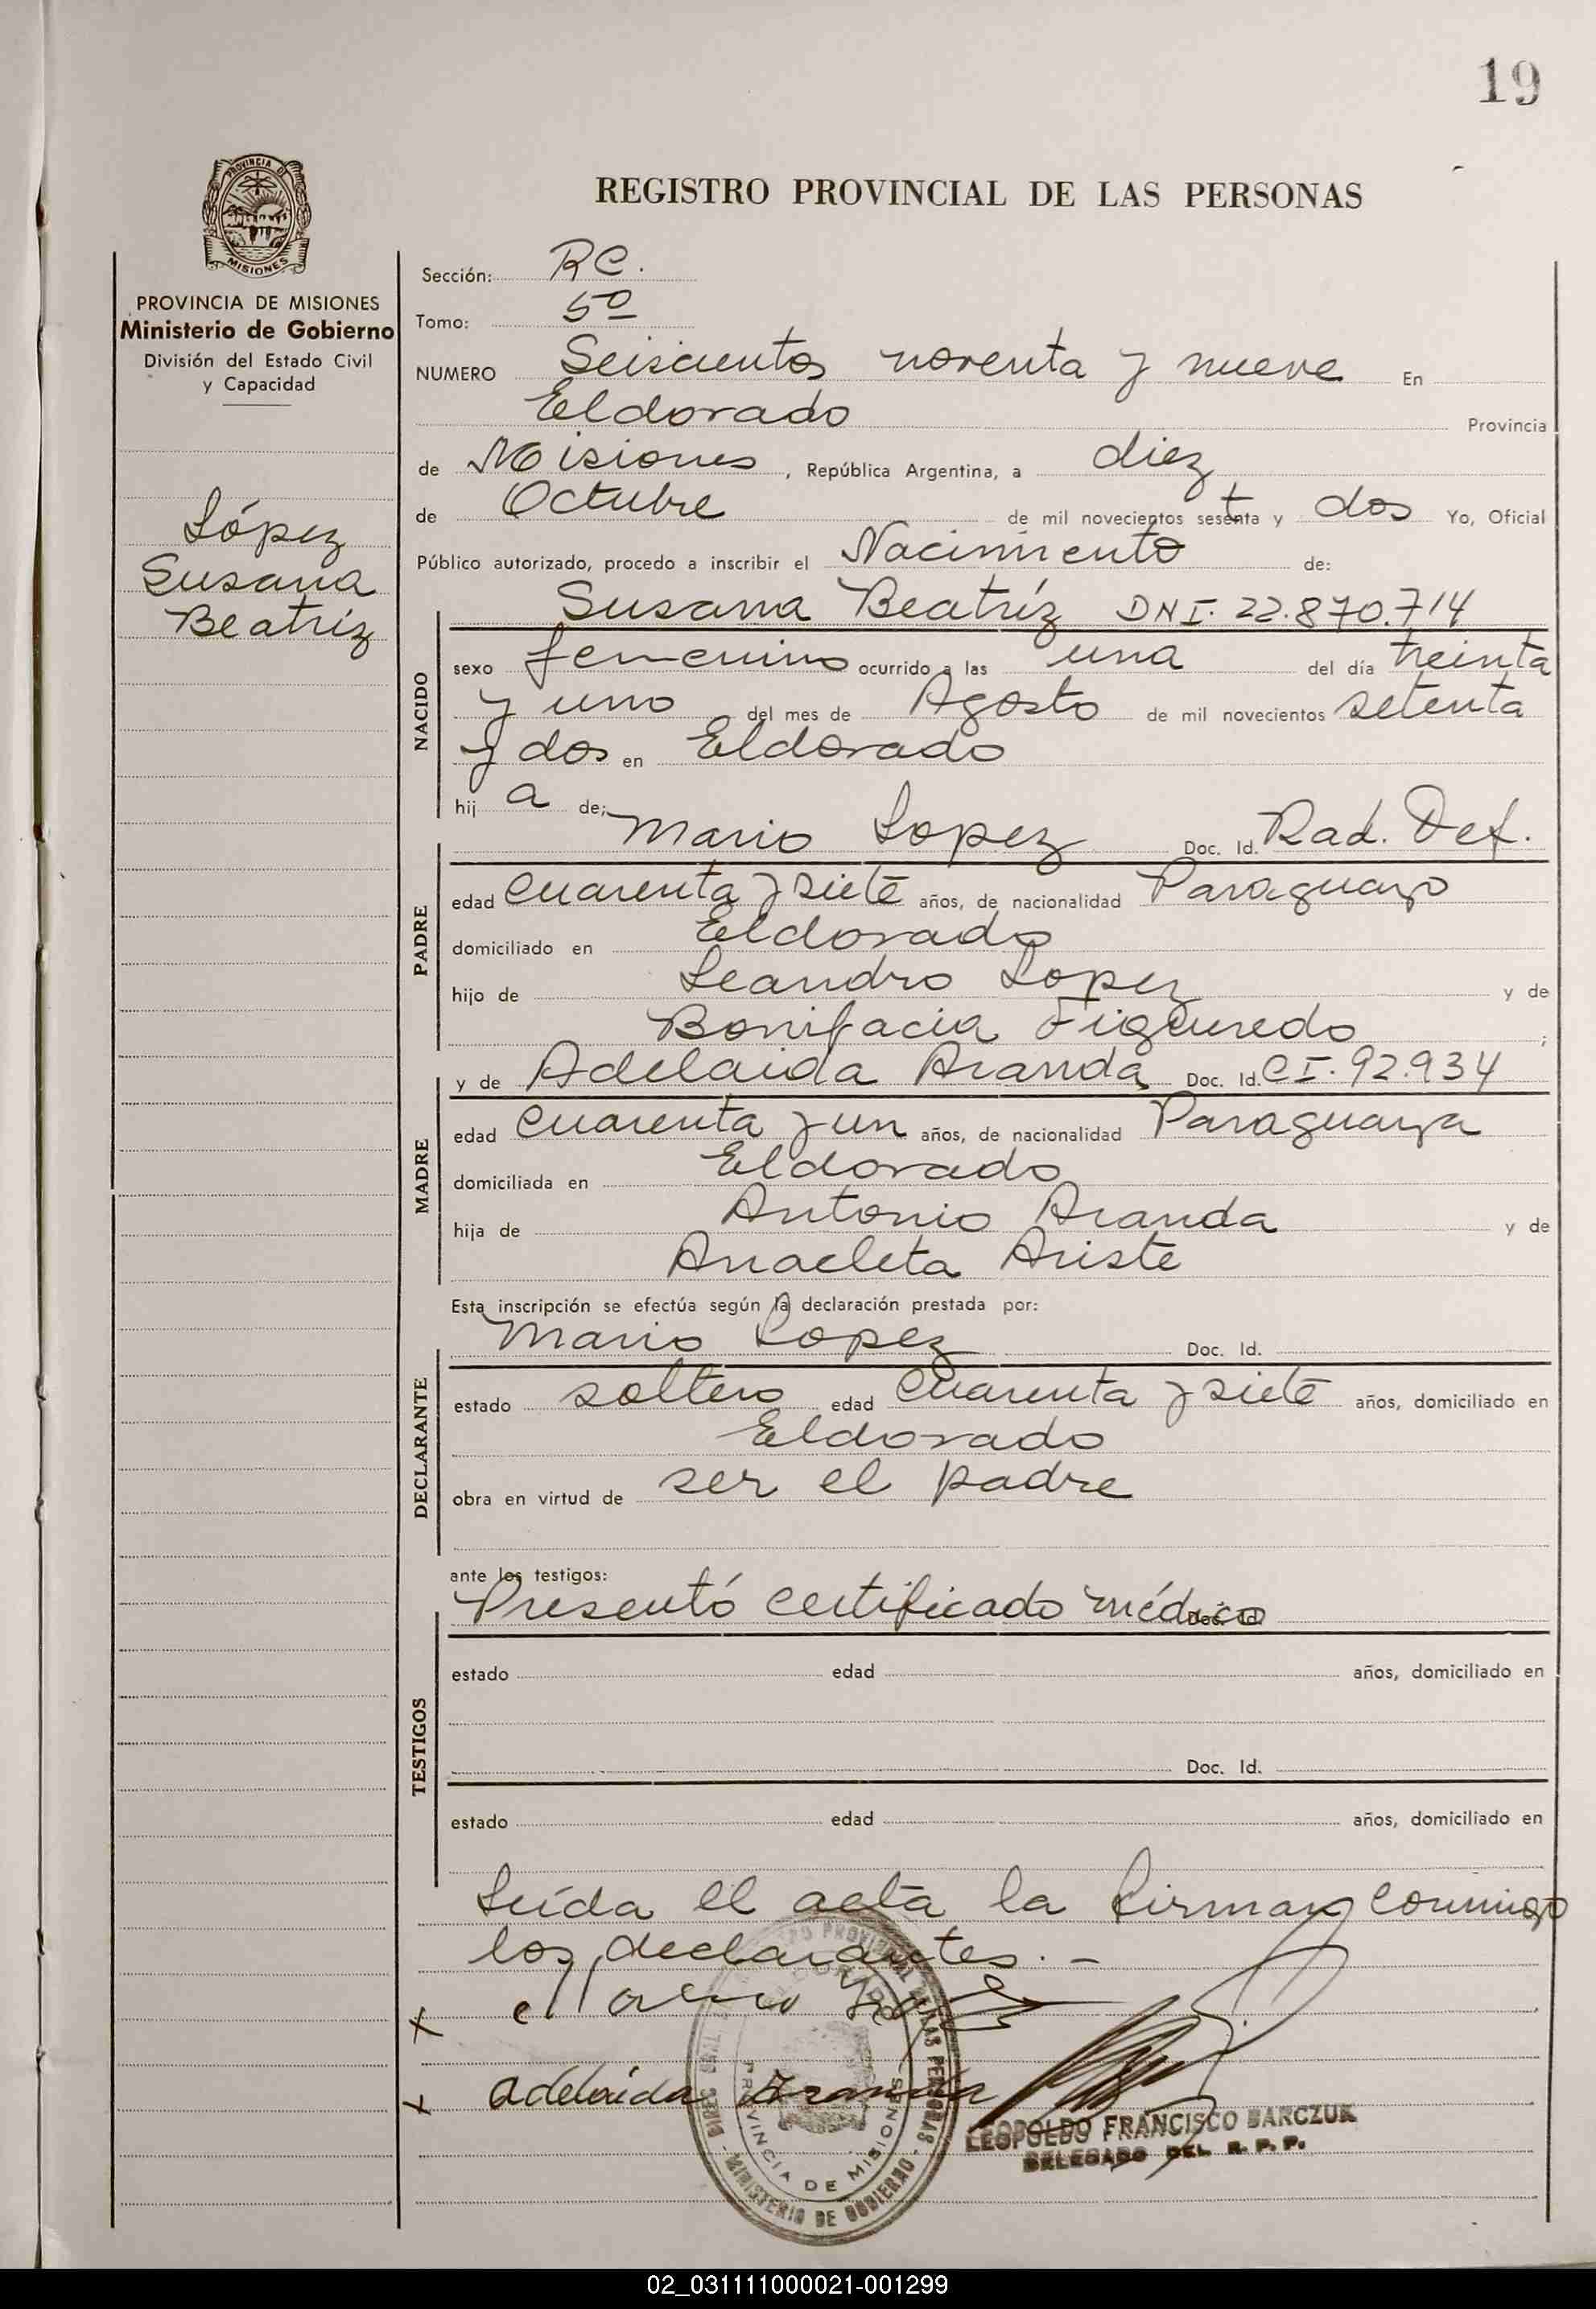 19
PROVINCIA DE
MISIONES
PROVINCIA DE MISIONES
Ministerio de Gobierno
División del Estado Civil
y Capacidad
López
Susana
Beatríz
REGISTRO PROVINCIAL DE LAS PERSONAS
Sección: RC.
Tomo: 5º
NUMERO Seiscientos noventa y nueve En
Eldorado Provincia
de Misiones, República Argentina, a diez
de Octubre de mil novecientos sesenta y dos Yo, Oficial
Público autorizado, procedo a inscribir el Nacimiento de:
Susana Beatríz DNI. 22.870.714
NACIDO
sexo femenino ocurrido a las una del día treinta
y uno del mes de Agosto de mil novecientos setenta
y dos en Eldorado
hij a de:
Mario Lopez Doc. Id. Rad. Def.
PADRE
edad cuarenta y siete años, de nacionalidad Paraguayo
domiciliado en Eldorado
hijo de Leandro Lopez y de
Bonifacia Figueredo ;
y de Adelaida Aranda Doc. Id. CI. 92.934
MADRE
edad cuarenta y un años, de nacionalidad Paraguaya
domiciliada en Eldorado
hija de Antonio Aranda y de
Anacleta Ariste
Esta inscripción se efectúa según la declaración prestada por:
Mario Lopez Doc. Id.
DECLARANTE
estado soltero edad cuarenta y siete años, domiciliado en
Eldorado
obra en virtud de ser el padre
ante los testigos:
Presentó certificado médico Doc. Id.
TESTIGOS
estado edad años, domiciliado en
Doc. Id.
estado edad años, domiciliado en
Leída el acta la firman conmigo
los declarantes. -
x
x adelaida Aranda
MINISTERIO DE GOBIERNO
PROVINCIA DE MISIONES
LEOPOLDO FRANCISCO BARCZUK
DELEGADO DEL R. P. P.
02_031111000021-001299